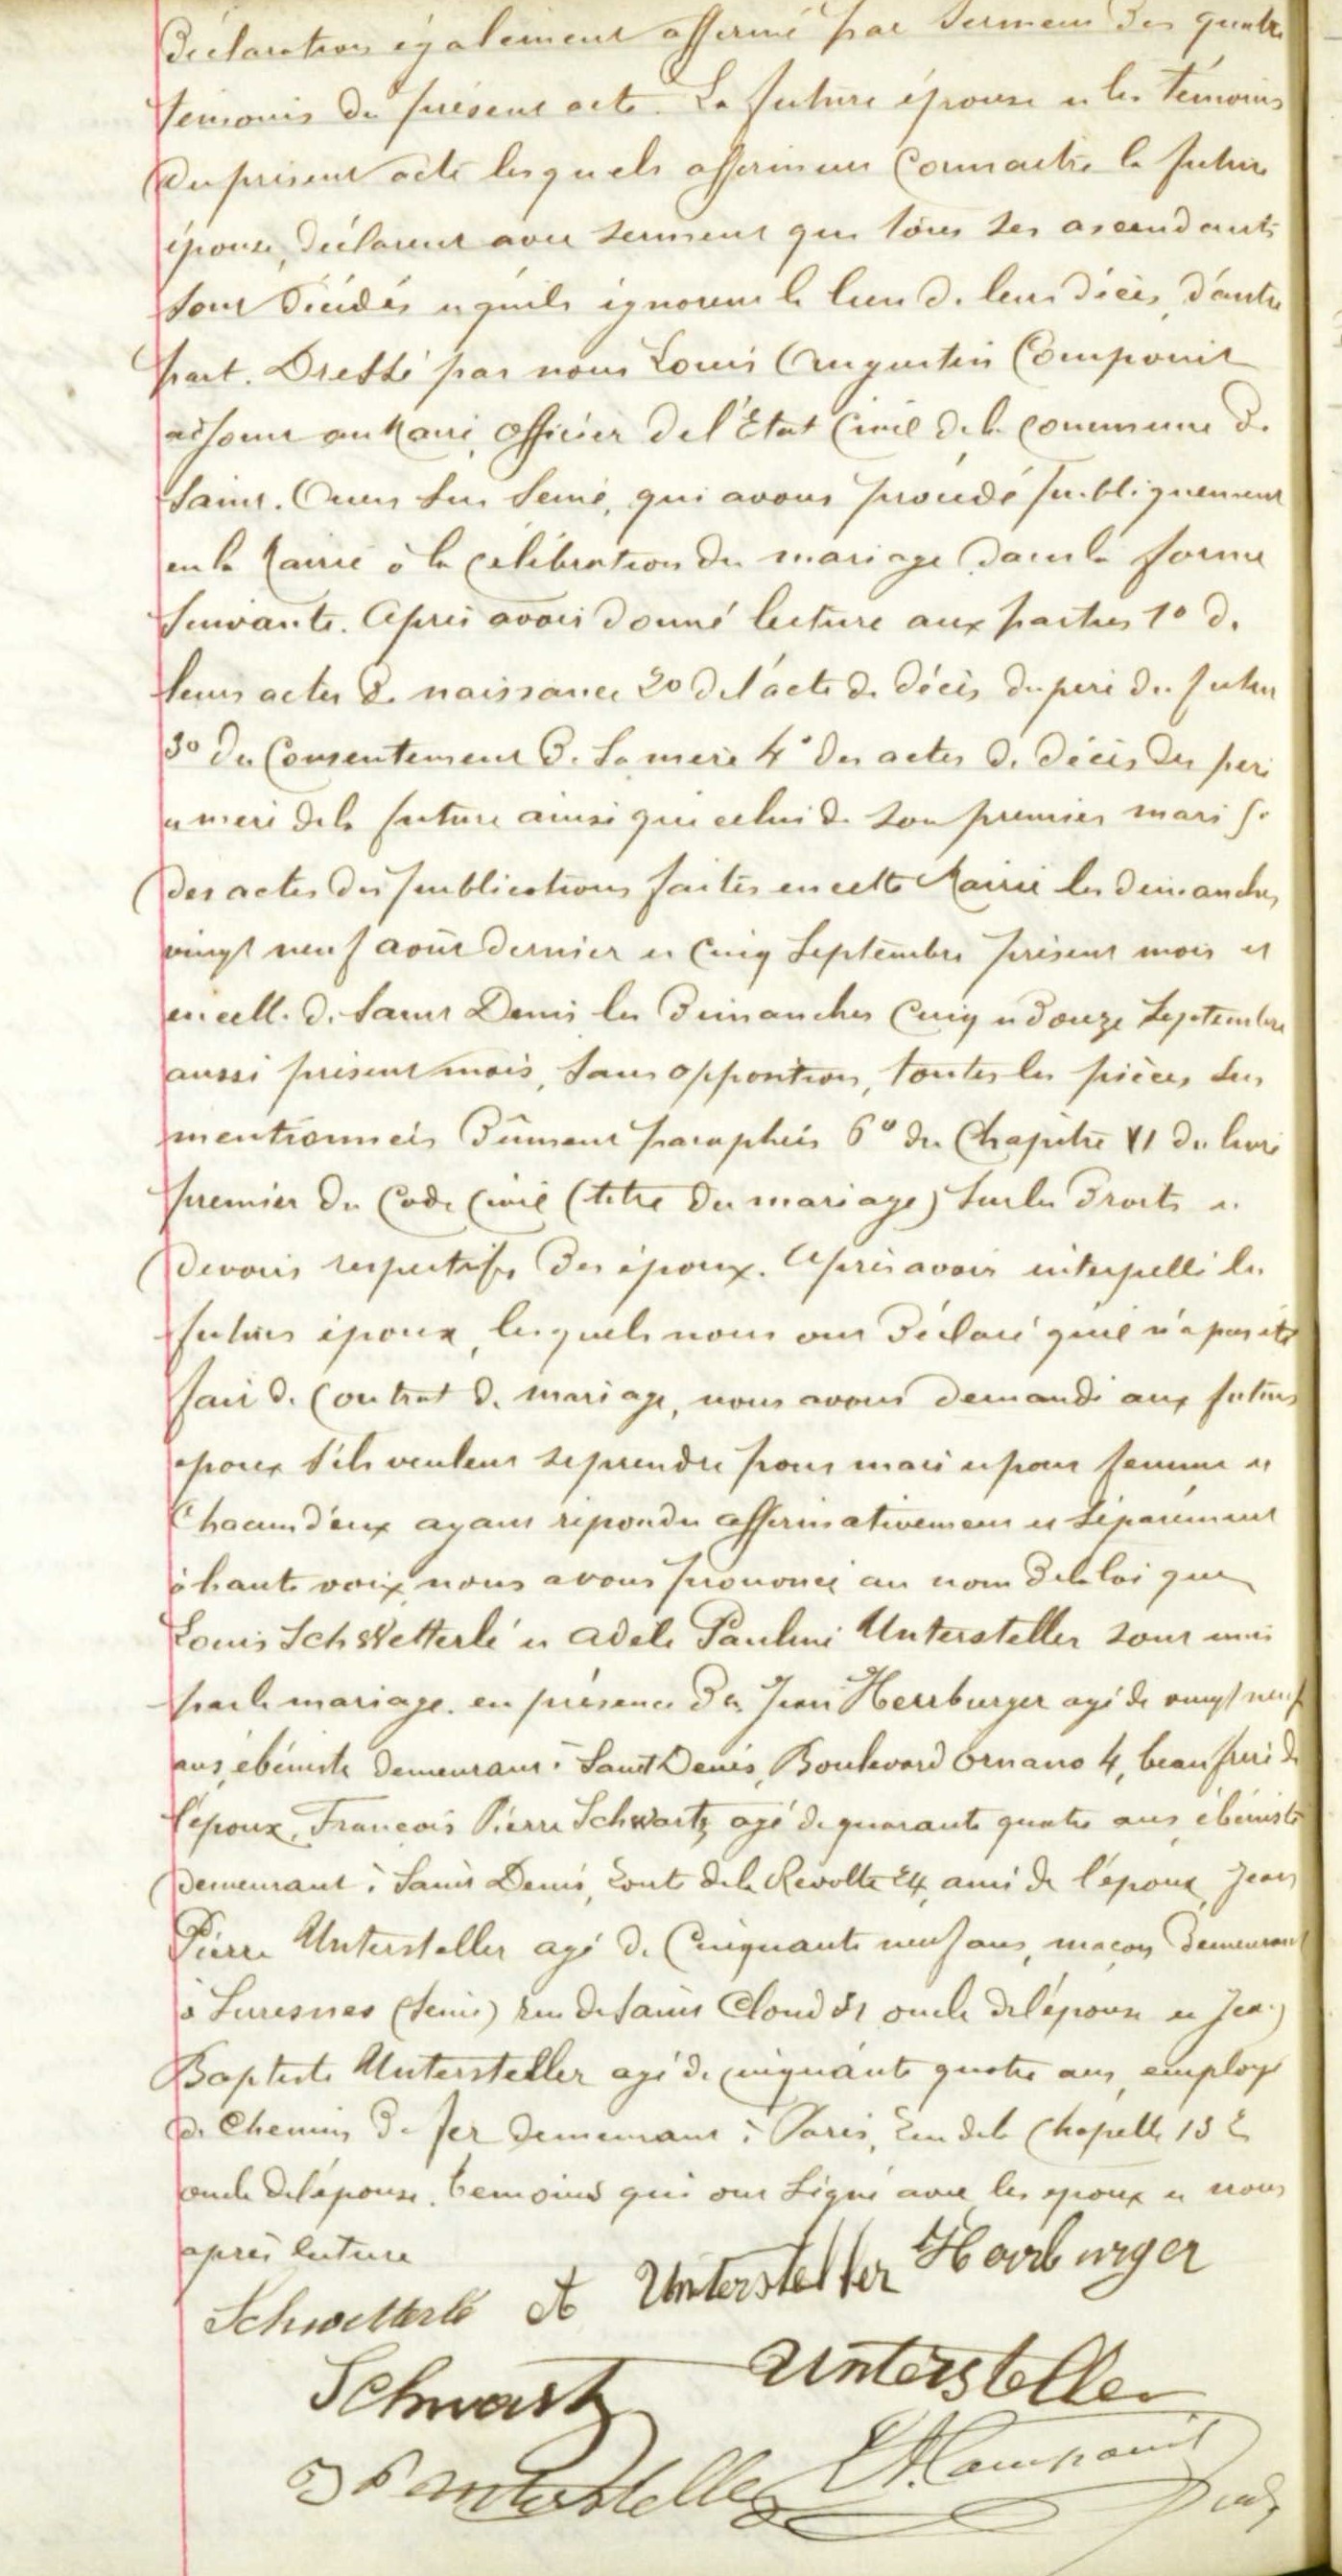 déclaration également affirmé par serment des quatre
témoins du présent acte. La future épouse et les témoins
du présent acte lesquels affirment connaitre la future
épouse, déclarent avec serment que tous ses ascendants
sont décédés et qu'ils ignorent le lieu de leur décès, d'autre
part. Dressé par nous Louis Augustin Compoint
adjoint au Maire, officier de l'Etat Civil de la commune de
Saint. Ouen sur Seine, qui avons procédé publiquement
en la Mairie à la célébration du mariage dans la forme
suivante. Après avoir donné lecture aux parties 1o de
leurs actes de naissance 2o de l'acte de décès du père du futur
3o du consentement de sa mère 4o des actes de décès des père
et mère de la future ainsi que celui de son premier mari 5o
des actes des publications faites en cette Mairie les dimanches
vingt neuf août dernier et cinq Septembre présent mois et
en celle de Saint Denis les Dimanches cinq et douze Septembre
aussi présent mois, sans opposition, toutes les pièces sus
mentionnées dûment paraphées 6o du Chapitre VI du livre
premier du Code Civil (titre du mariage) sur les droits et
devoirs respectifs des époux. Après avoir interpellé les
futurs époux, lesquels nous ont déclaré qu'il n'a pas été
fait de contrat de mariage, nous avons demandé aux futurs
époux s'ils veulent se prendre pour mari et pour femme et
chacun d'eux ayant répondu affirmativement et séparément
à haute voix, nous avons prononcé au nom de la loi que
Louis Schwetterlé et Adèle Pauline Untersteller sont unis
par le mariage. en présence de Jean Herrburger agé de vingt neuf
ans, ébéniste demeurant à Saint Denis, Boulevard Ornano 4, beau frère de
l'époux, François Pierre Schwartz agé de quarante quatre ans ébéniste
demeurant à Saint Denis, route de la Révolte 24, ami de l'époux, Jean
Pierre Untersteller agé de cinquante neuf ans, maçon demeurant
à Suresnes (Seine) rue de Saint Cloud 51 oncle de l'épouse et Jean
Baptiste Untersteller agé de cinquante quatre ans, employé
de Chemin de fer demeurant à Paris, rue de la Chapelle 132
oncle de l'épouse. témoins qui ont signé avec les époux et nous
après lecture
Schwetterlé A Untersteller Herrburger
Schwartz Untersteller
JB Untersteller LA. Compoint